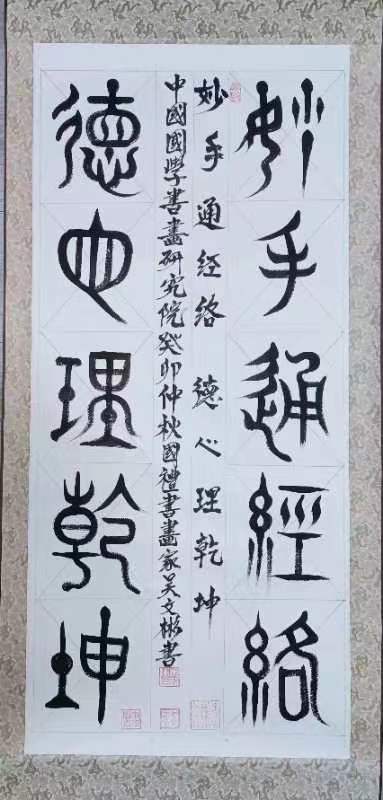 妙手通經絡
妙手通经络 德心理乾坤
中國國學書畫研究院癸卯仲秋國禮書畫家吴文彬書
德心理乾坤